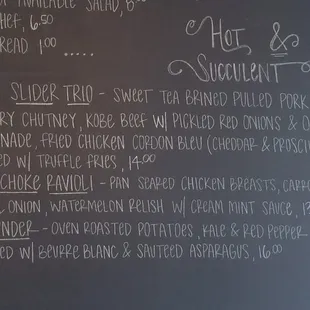 AVAILABLE SALAD,
HEF, 6.50
READ 1.00
HOT &
SUCCULENT
SLIDER TRIO - SWEET TEA BRINED PULLED PORK
RY CHUTNEY, KOBE BEEF W/ PICKLED RED ONIONS &
NADE, FRIED CHICKEN CORDON BLEU (CHEDDAR & PROSCI
ED W/ TRUFFLE FRIES, 14.00
CHOKE RAVIOLI - PAN SEARED CHICKEN BREASTS, CARR
ONION, WATERMELON RELISH W/ CREAM MINT SAUCE, 13
NDER - OVEN ROASTED POTATOES, KALE & RED PEPPER
ED W/ BEURRE BLANC & SAUTEED ASPARAGUS, 16.00